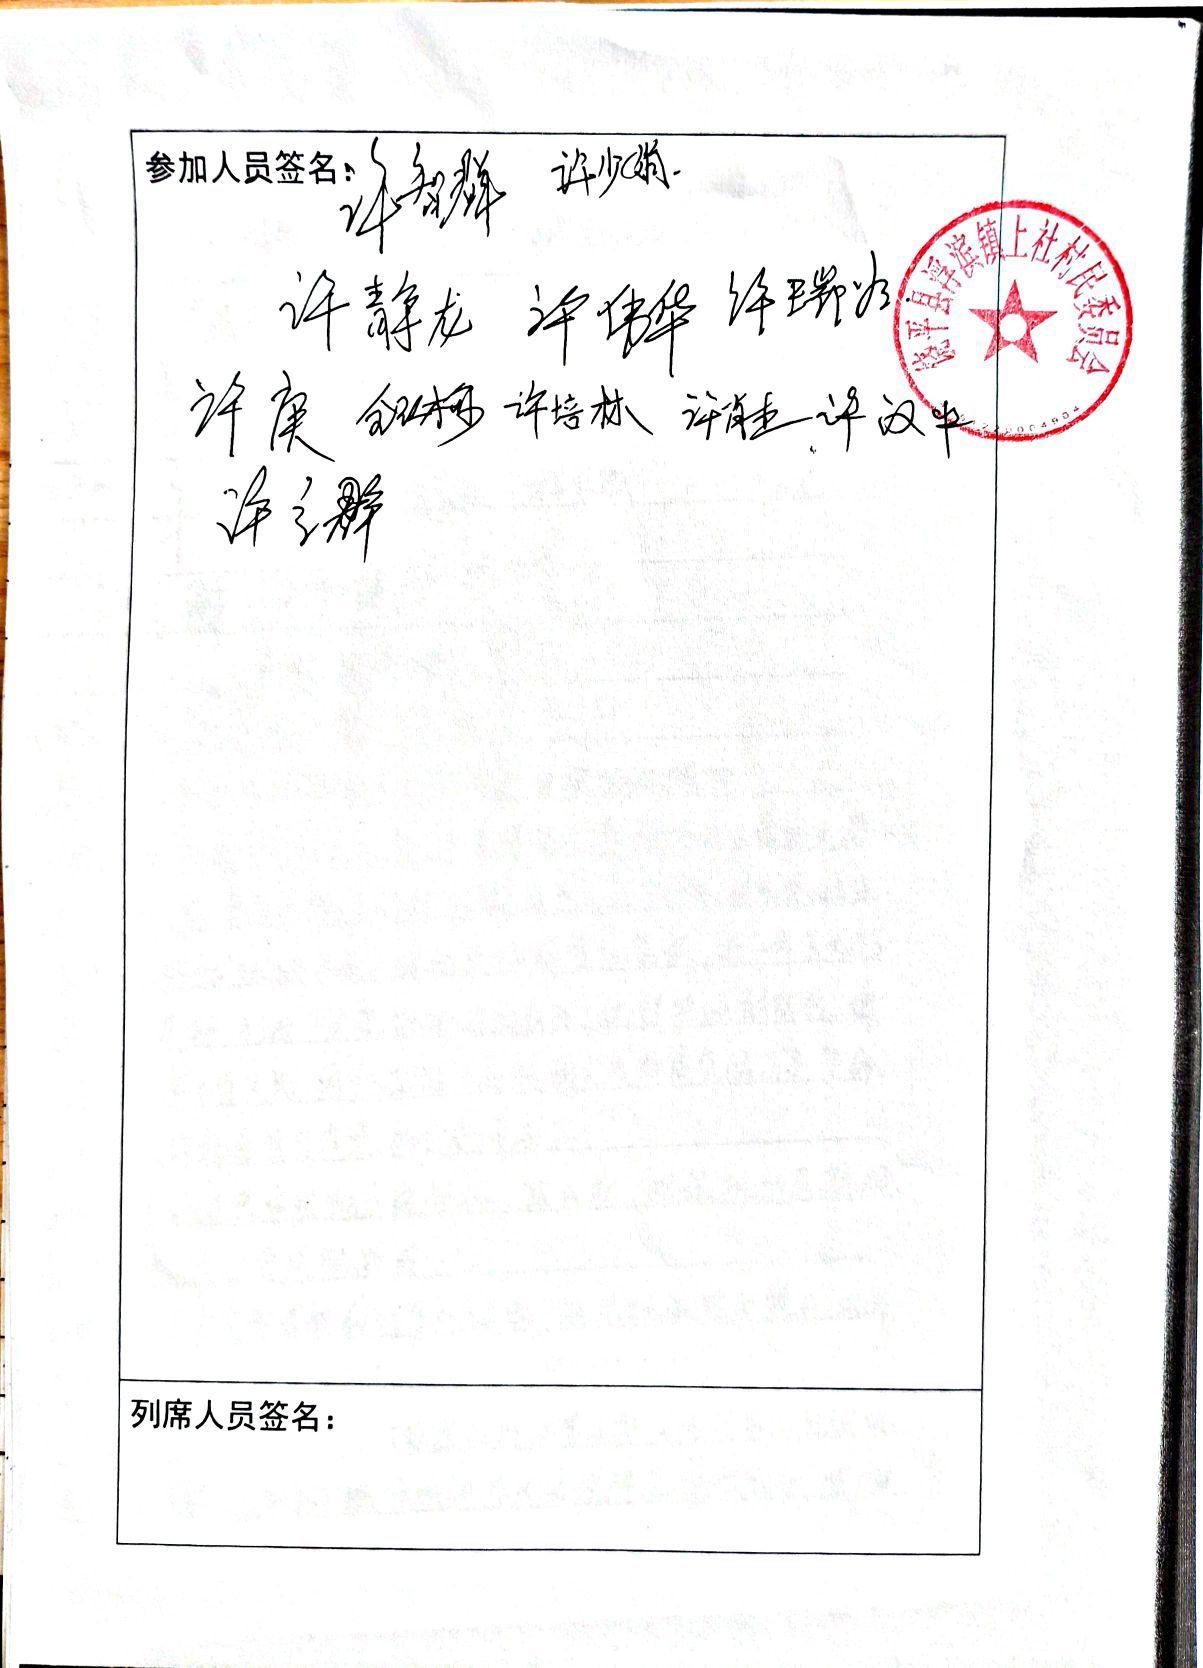 参加人员签名：许智群 许少娟.
许静龙 许伟华 许
许庚 许培林 许 许汉平
许立群
饶平县浮滨镇上社村民委员会
列席人员签名：